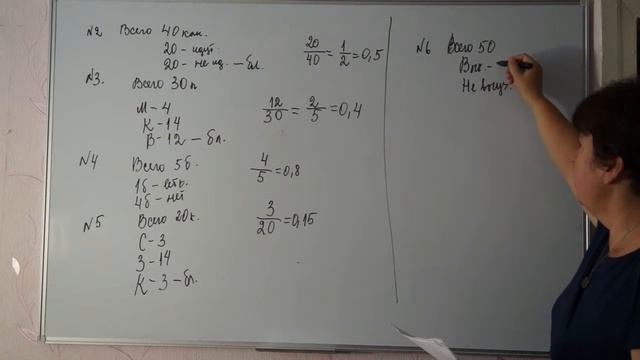 N2 Всего 40 кан.
20 - идут
20 - не ид. - бл.
20/40 = 1/2 = 0,5
N3. Всего 30 п
М - 4
К - 14
В - 12 - бл.
12/30 = 2/5 = 0,4
N4 Всего 5 б.
1 б - есть
4 б - нет
4/5 = 0,8
N5 Всего 20 к.
С - 3
З - 14
К - 3 - бл.
3/20 = 0,15
N6 Всего 50
Вып. -
Не выуч.